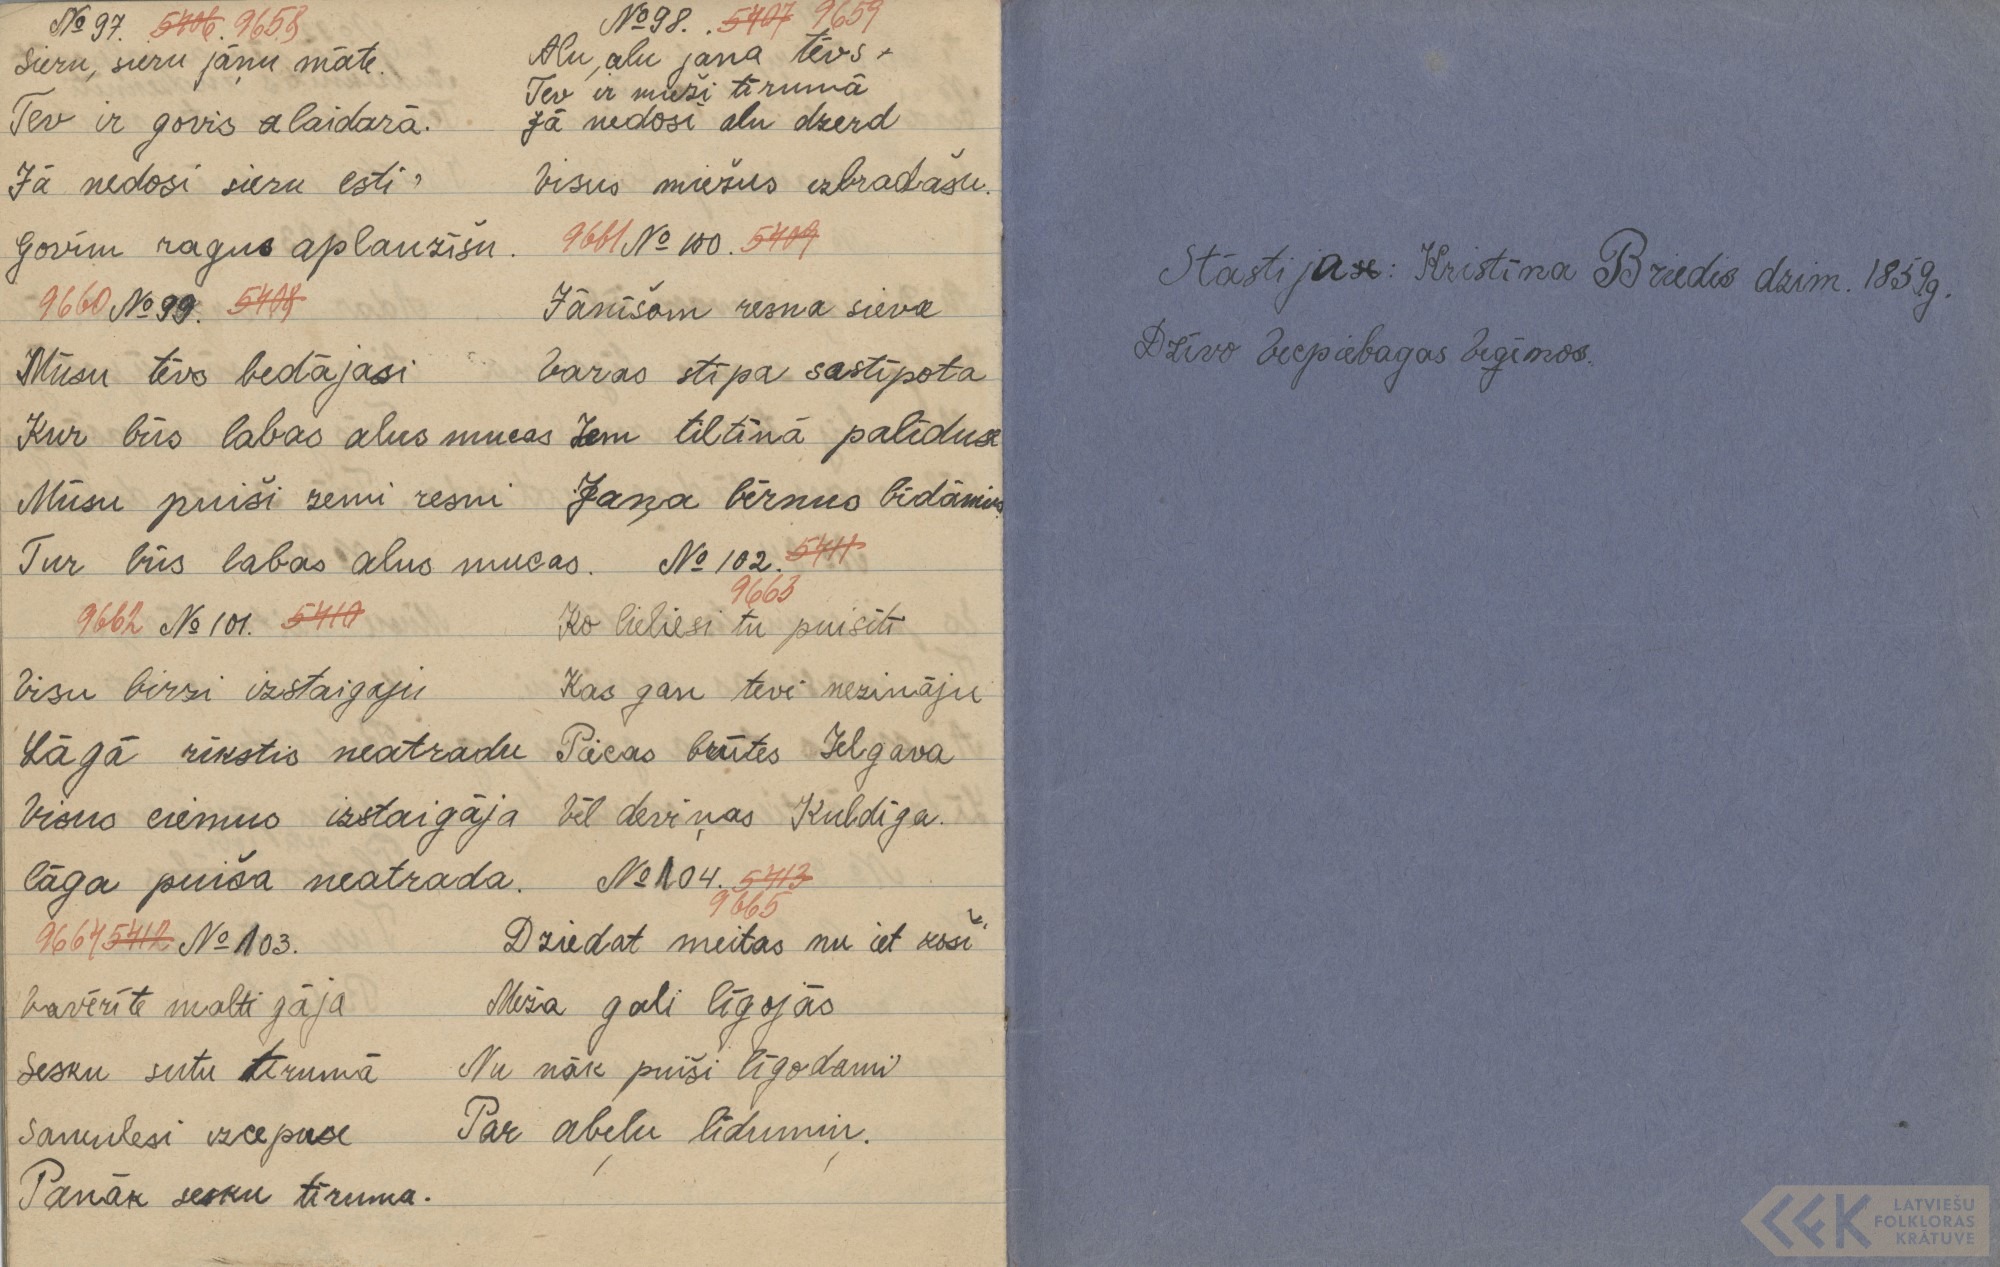 № 97. 5406. 9658
Sieru, sieru jāņu māte.
Tev ir govis alaidarā.
Jā nedosi sieru ēsti,
Govīm ragus aplauzīšu.
№ 98. 5407 9659
Alu, alu jāņa tēvs
Tev ir mieži tīrumā
Jā nedosi alu dzerd
Visus miežus izbradāšu.
9660 № 99. 5408
Mūsu tēvs bedājasi
Kur būs labas alus mucas
Mūsu puiši zemi resni
Tur būs labas alus mucas.
9661 № 100. 5409
Jānīšam resna sieva
Varas stīpa sastīpota
Zem tiltiņā palīduse
Jaņa bērnus bīdāmus
9662 № 101. 5410
Visu birzi izstaigaju
Lāgā rīkstis neatradu
Visus ciemus izstaigāja
lāga puiša neatrada.
№ 102. 5411
9663
Ko lielies tu puisīti
Kas gan tevi nezināju
Piecas brūtes Jelgava
Vēl deviņas Kuldīga.
9664 5412 № 103.
Vavērīte malti gāja
Sesku sutu tīrumā
Samulesi izcepuse
Panāk sesku tīruma.
№ 104. 5413
9665
Dziedat meitas nu iet koši
Meža gali līgojās
Nu nāk puiši līgodami
Par abeļu līdumiņ.
Stāstijase: Kristīna Briedis dzim. 1859g.
Dzīvo Vecpiebagas Veģīnos.
LATVIEŠU
FOLKLORAS
KRĀTUVE